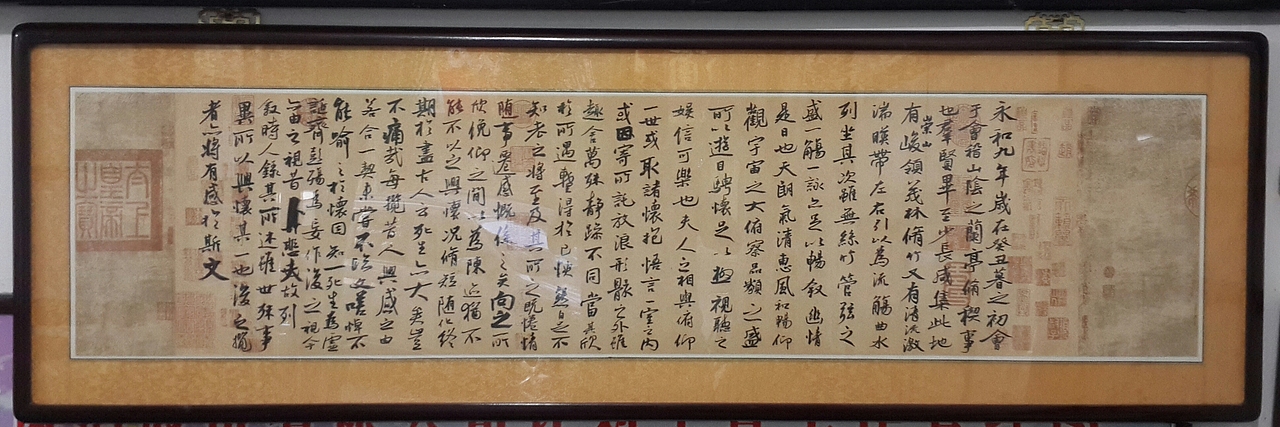 永和九年歲在癸丑暮之初會
于會稽山陰之蘭亭脩稧事
也羣賢畢至少長咸集此地
有崇山峻領茂林脩竹又有清流激
湍暎帶左右引以為流觴曲水
列坐其次雖無絲竹管弦之
盛一觴一詠亦足以暢敘幽情
是日也天朗氣清惠風和暢仰
觀宇宙之大俯察品類之盛
所以遊目騁懷足以極視聽之
娛信可樂也夫人之相與俯仰
一世或取諸懷抱悟言一室之內
或因寄所託放浪形骸之外雖
趣舍萬殊靜躁不同當其欣
於所遇暫得於己怏然自足不
知老之將至及其所之既惓情
随事遷感慨係之矣向之所
欣俛仰之間以為陳迹猶不
能不以之興懷況脩短隨化終
期於盡古人云死生亦大矣豈
不痛哉每攬昔人興感之由
若合一契未嘗不臨文嗟悼不
能喻之於懷固知一死生為虛
誕齊彭殤為妄作後之視今
亦由今之視昔悲夫故列
敘時人錄其所述雖世殊事
異所以興懷其一也後之攬
者亦將有感於斯文